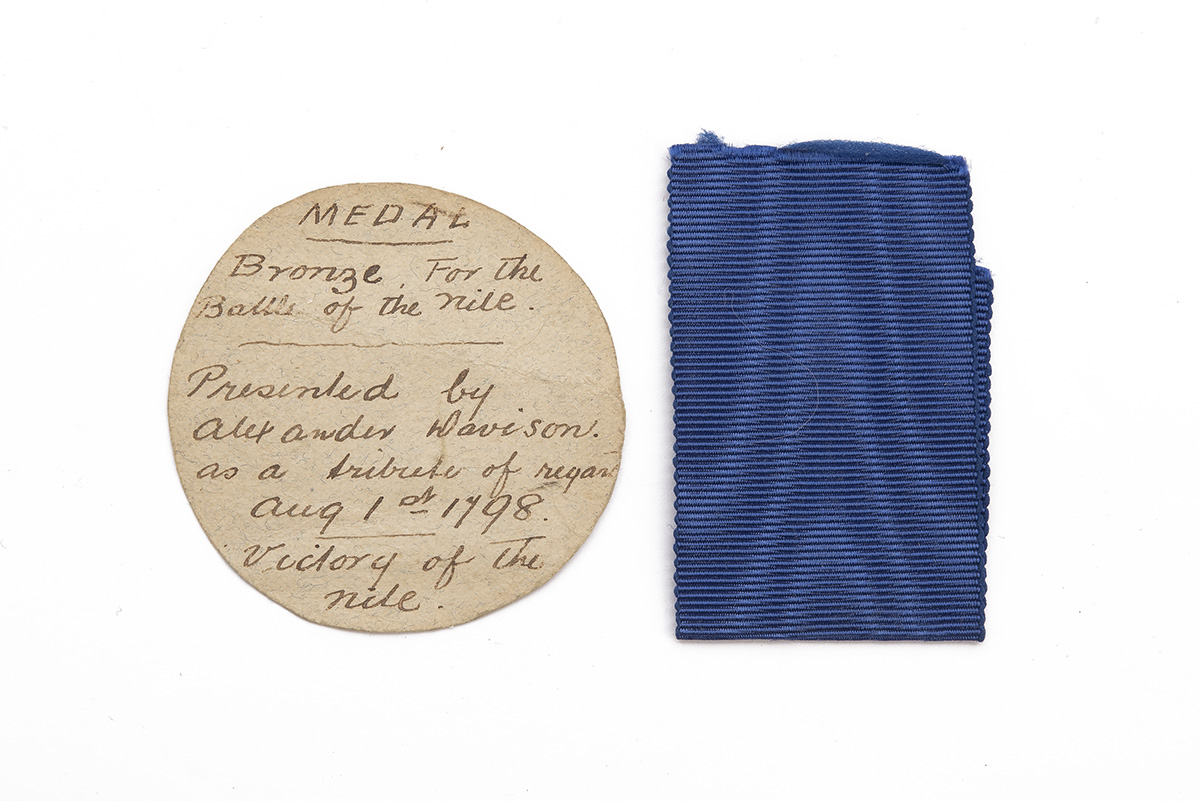 MEDAL
Bronze. For the
Battle of the Nile.
Presented by
Alexander Davison.
as a tribute of regard
Aug 1st 1798.
Victory of the
Nile.